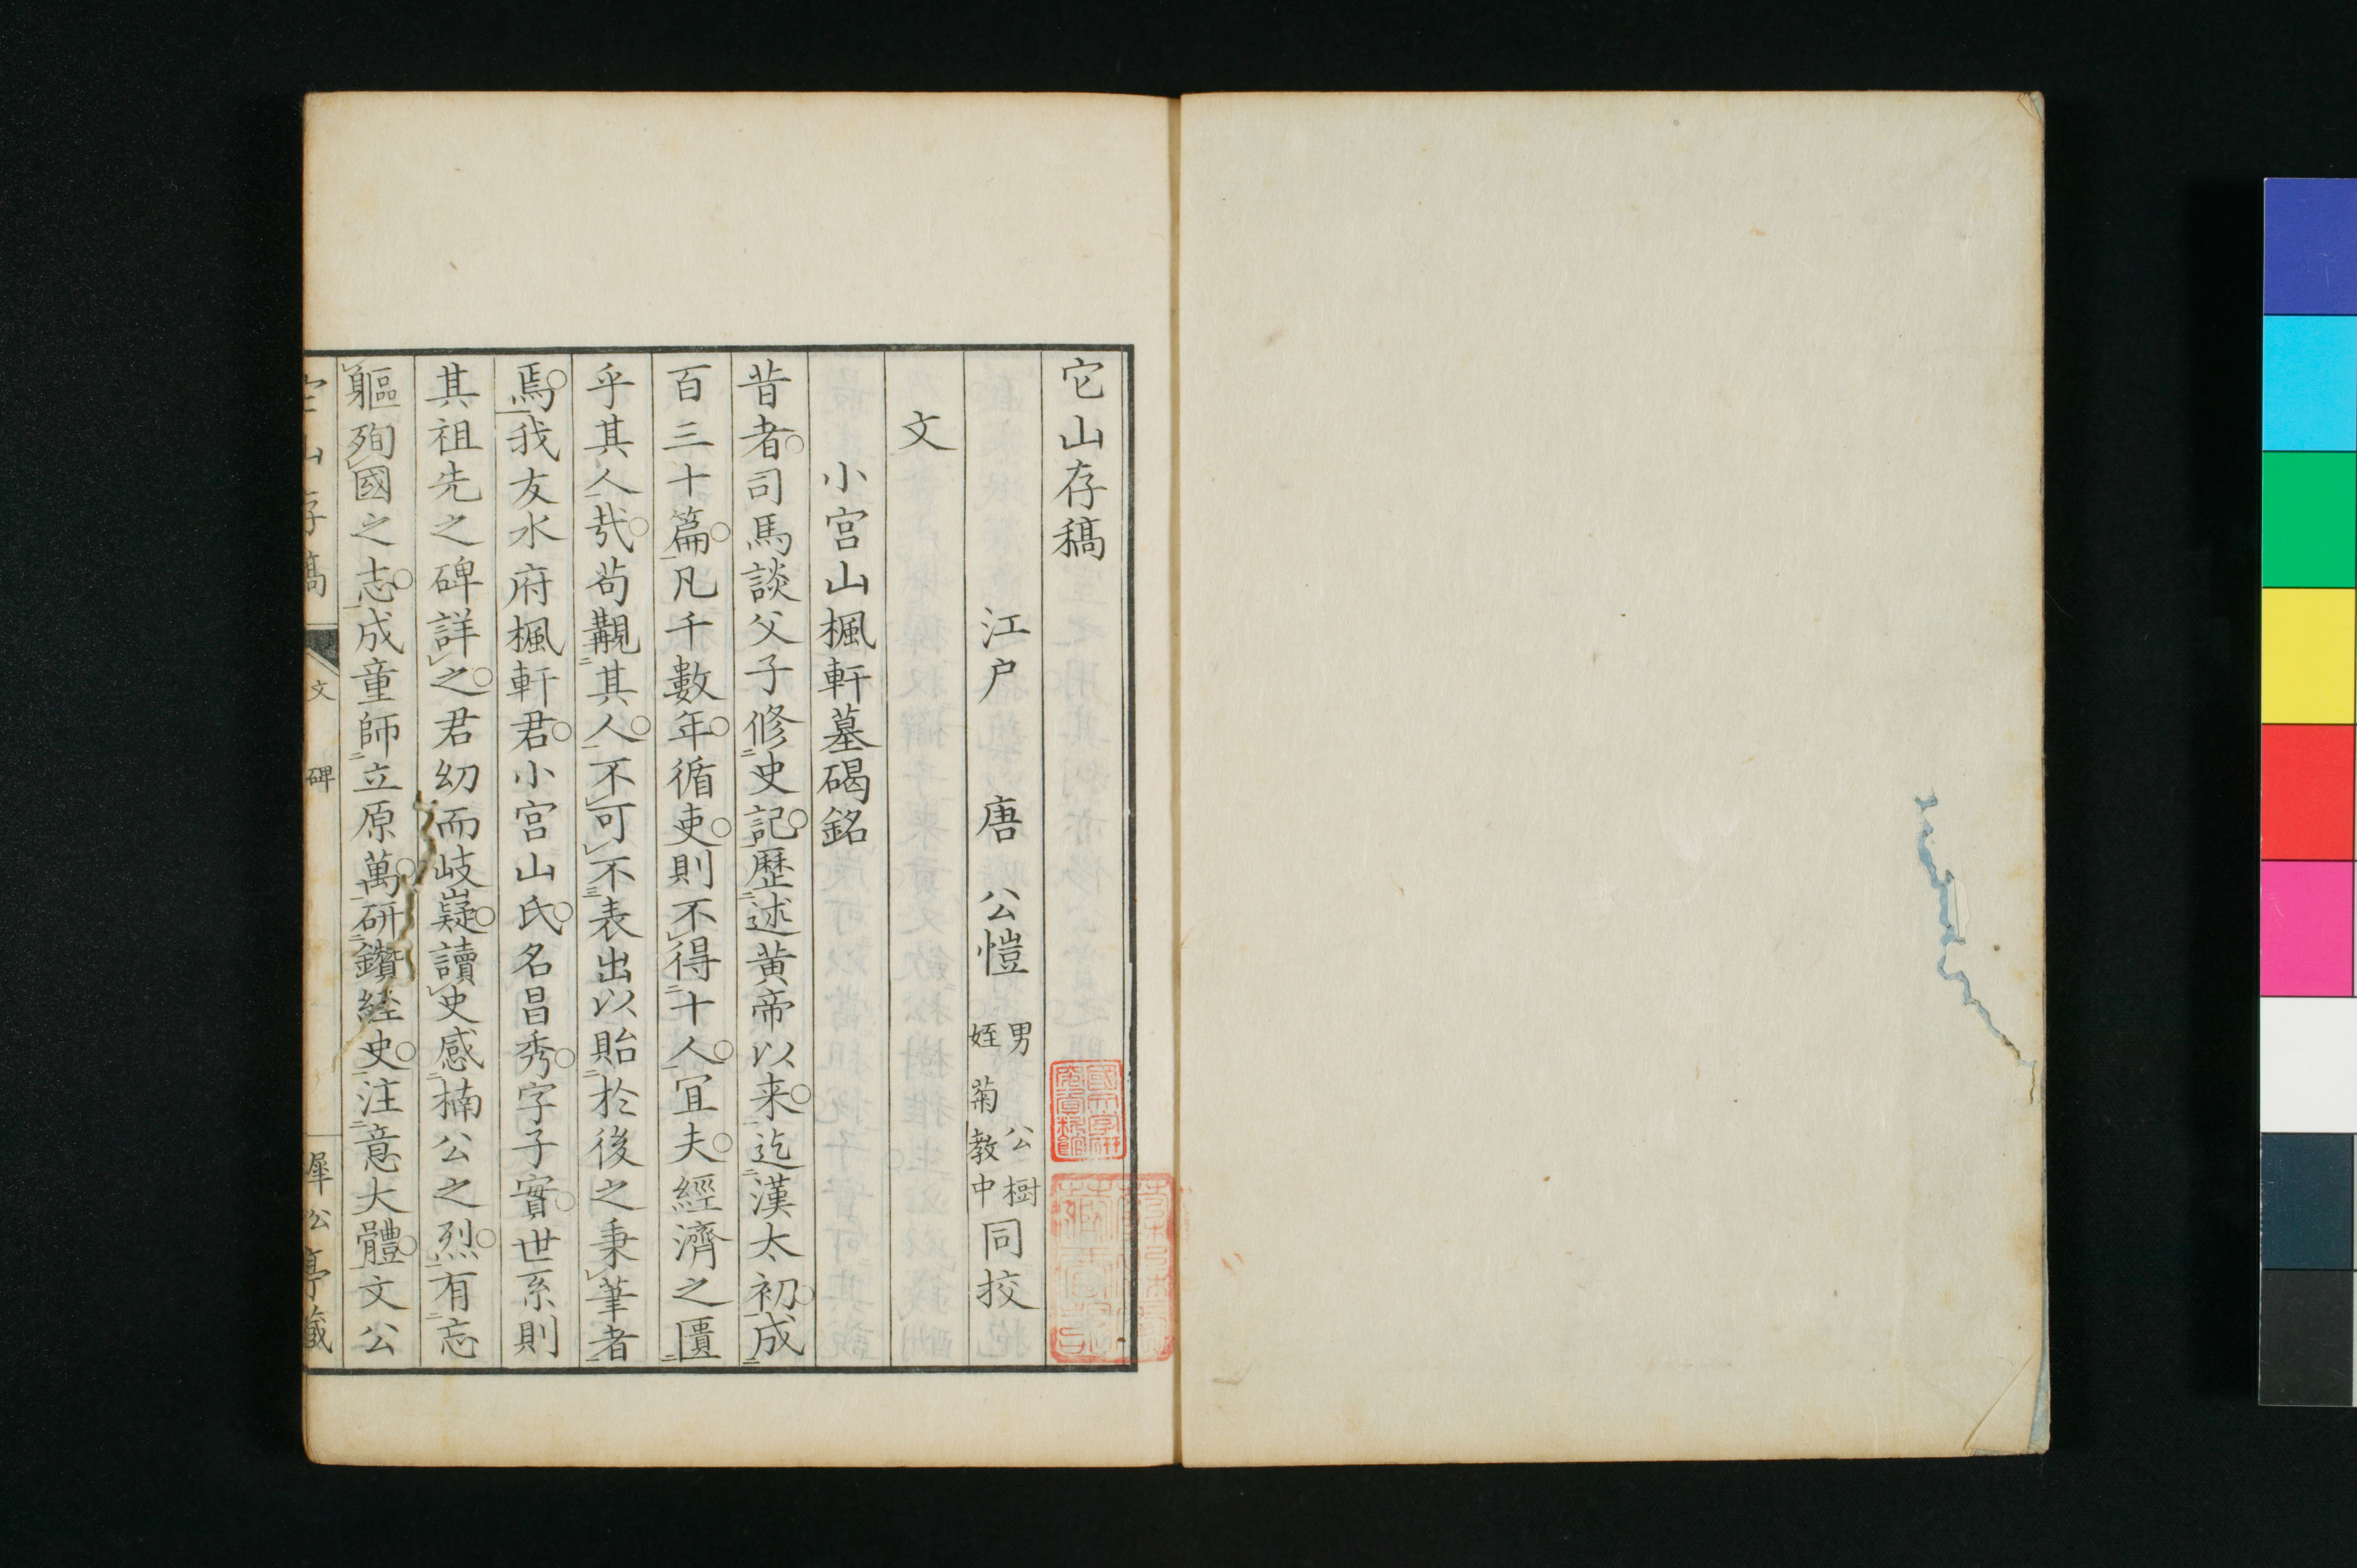 它山存稿
江戸 唐 公愷 男 公樹 姪 菊教中 同挍
文
小宮山楓軒墓碣銘
昔者。司馬談父子修史記。歴述黄帝以来。迄漢太初。成
百三十篇。凡千數年。循吏。則不得十人。宜夫。經濟之匱
乎其人哉。苟覯其人。不可不表出以貽於後之秉筆者
焉。我友水府楓軒君。小宮山氏。名昌秀。字子實。世系則
其祖先之碑詳之。君幼而岐嶷。讀史感楠公之烈。有忘
軀殉國之志。成童師立原萬。研鑽経史。注意大體。文公
它山存稿 文 碑 犀公亭藏